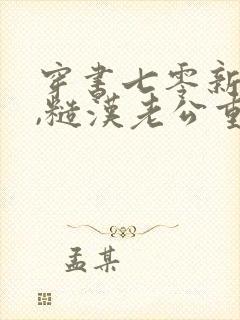 穿书七零新
,糙汉老公重
孟某